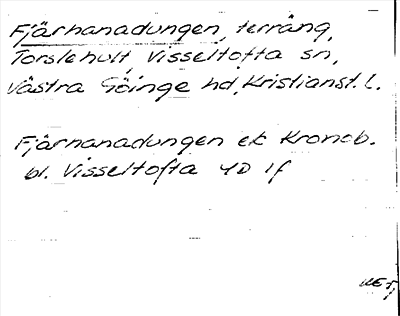 Fjärnanadungen, terräng,
Torslehult, Visseltofta sn,
Västra Göinge hd, Kristianst. l.
Fjärnanadungen ek Kronob.
bl. Visseltofta 4D 1f